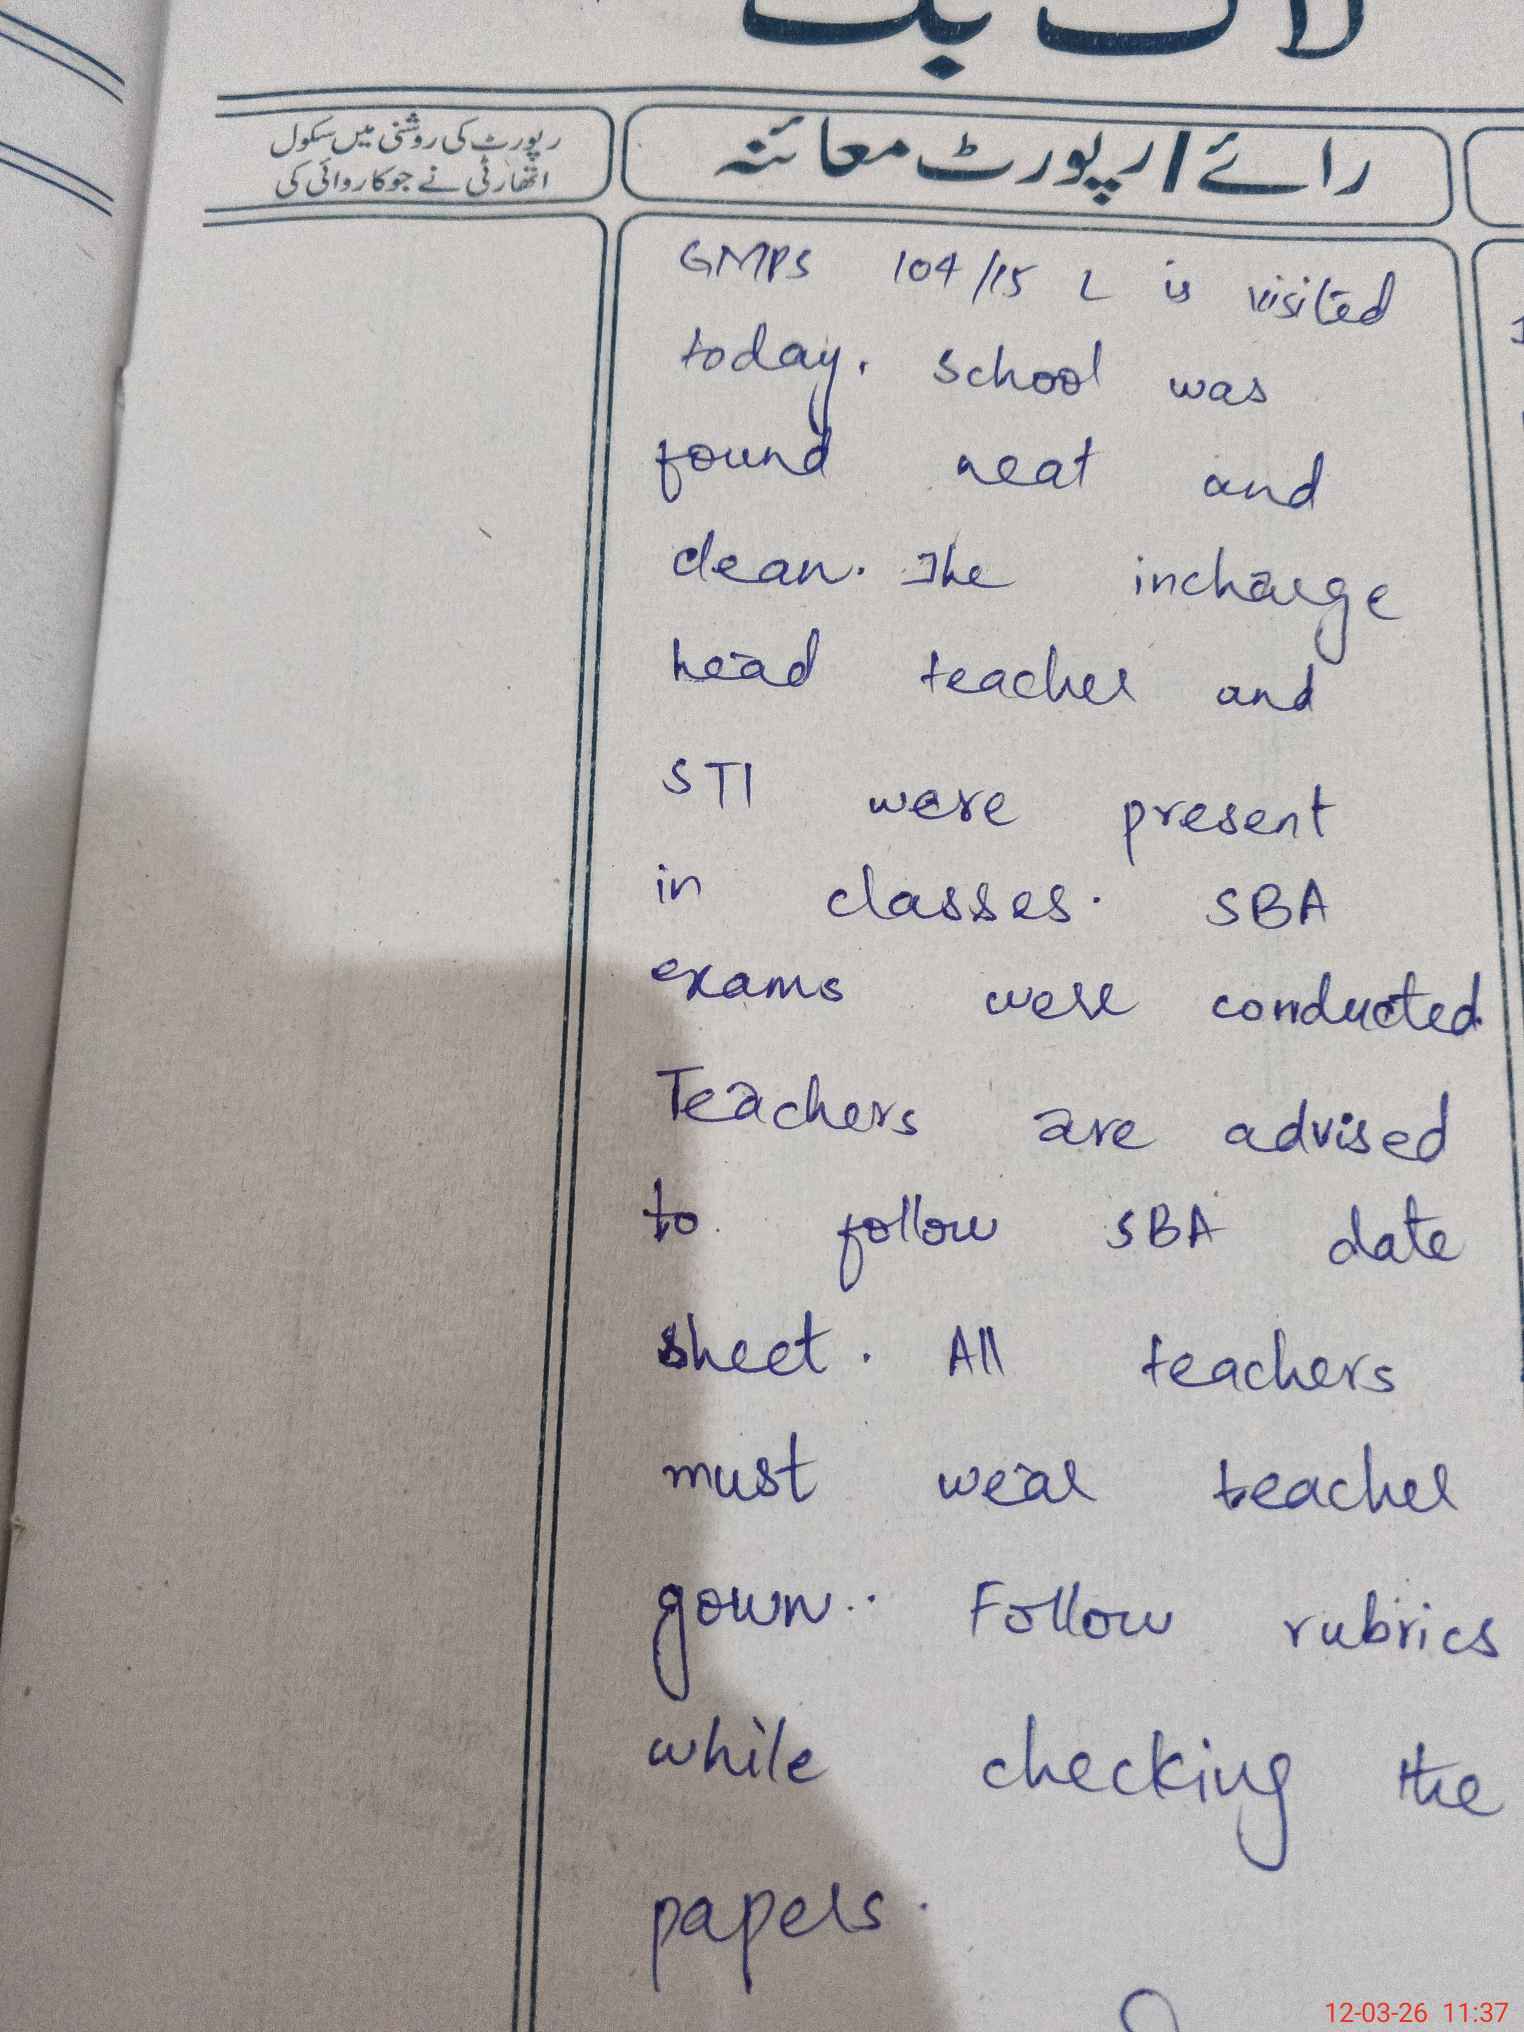 لاگ بک
رائے / رپورٹ معائنہ
رپورٹ کی روشنی میں سکول
اتھارٹی نے جو کاروائی کی
GMPS 104/15 L is visited
today. School was
found neat and
clean. The incharge
head teacher and
STI were present
in classes. SBA
exams were conducted.
Teachers are advised
to follow SBA date
sheet. All teachers
must wear teacher
gown. Follow rubrics
while checking the
papers.
12-03-26 11:37